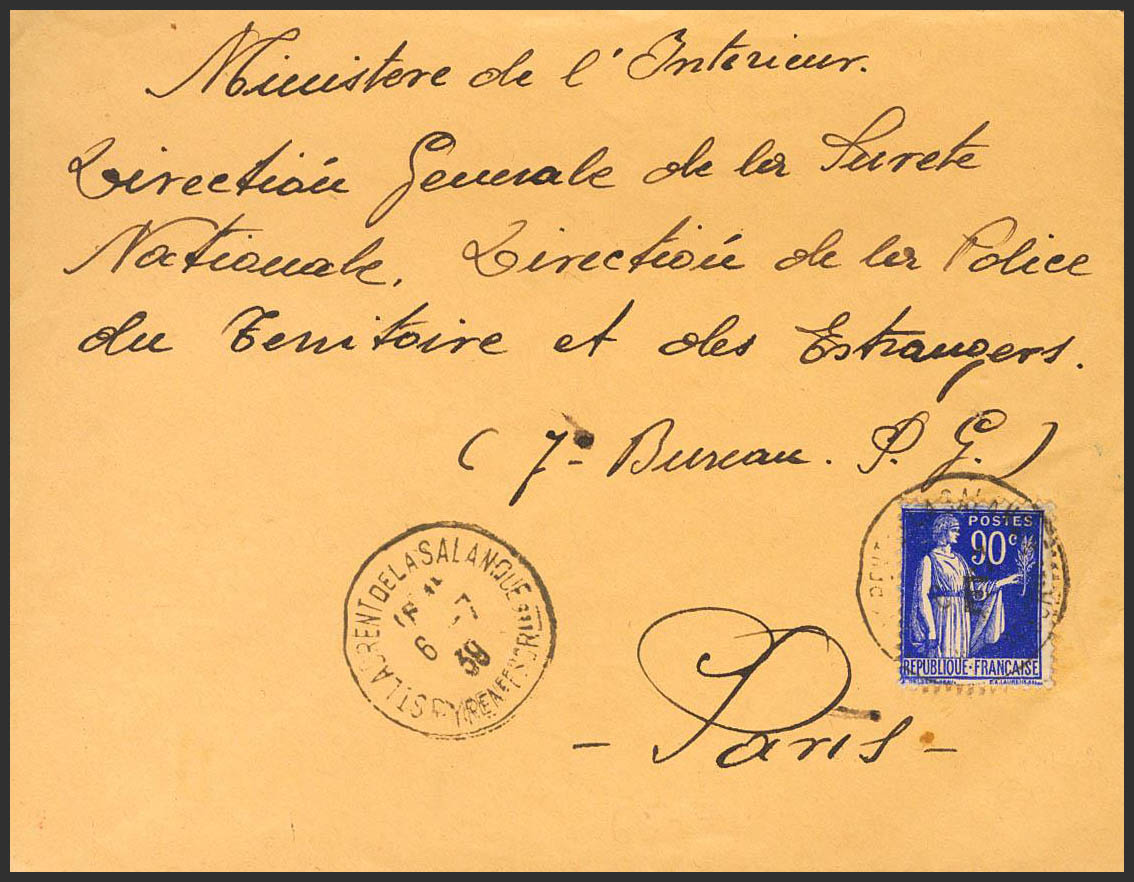 Ministere de l'Interieur.
Directión Generale de la Surete
Nationale. Directión de la Police
du Territoire et des Estrangers.
( 7º Bureau. P. G. )
POSTES
90c
REPUBLIQUE-FRANÇAISE
ST LAURENT DE LA SALANQUE
PYRENEES ORIles
6 39
- Paris -